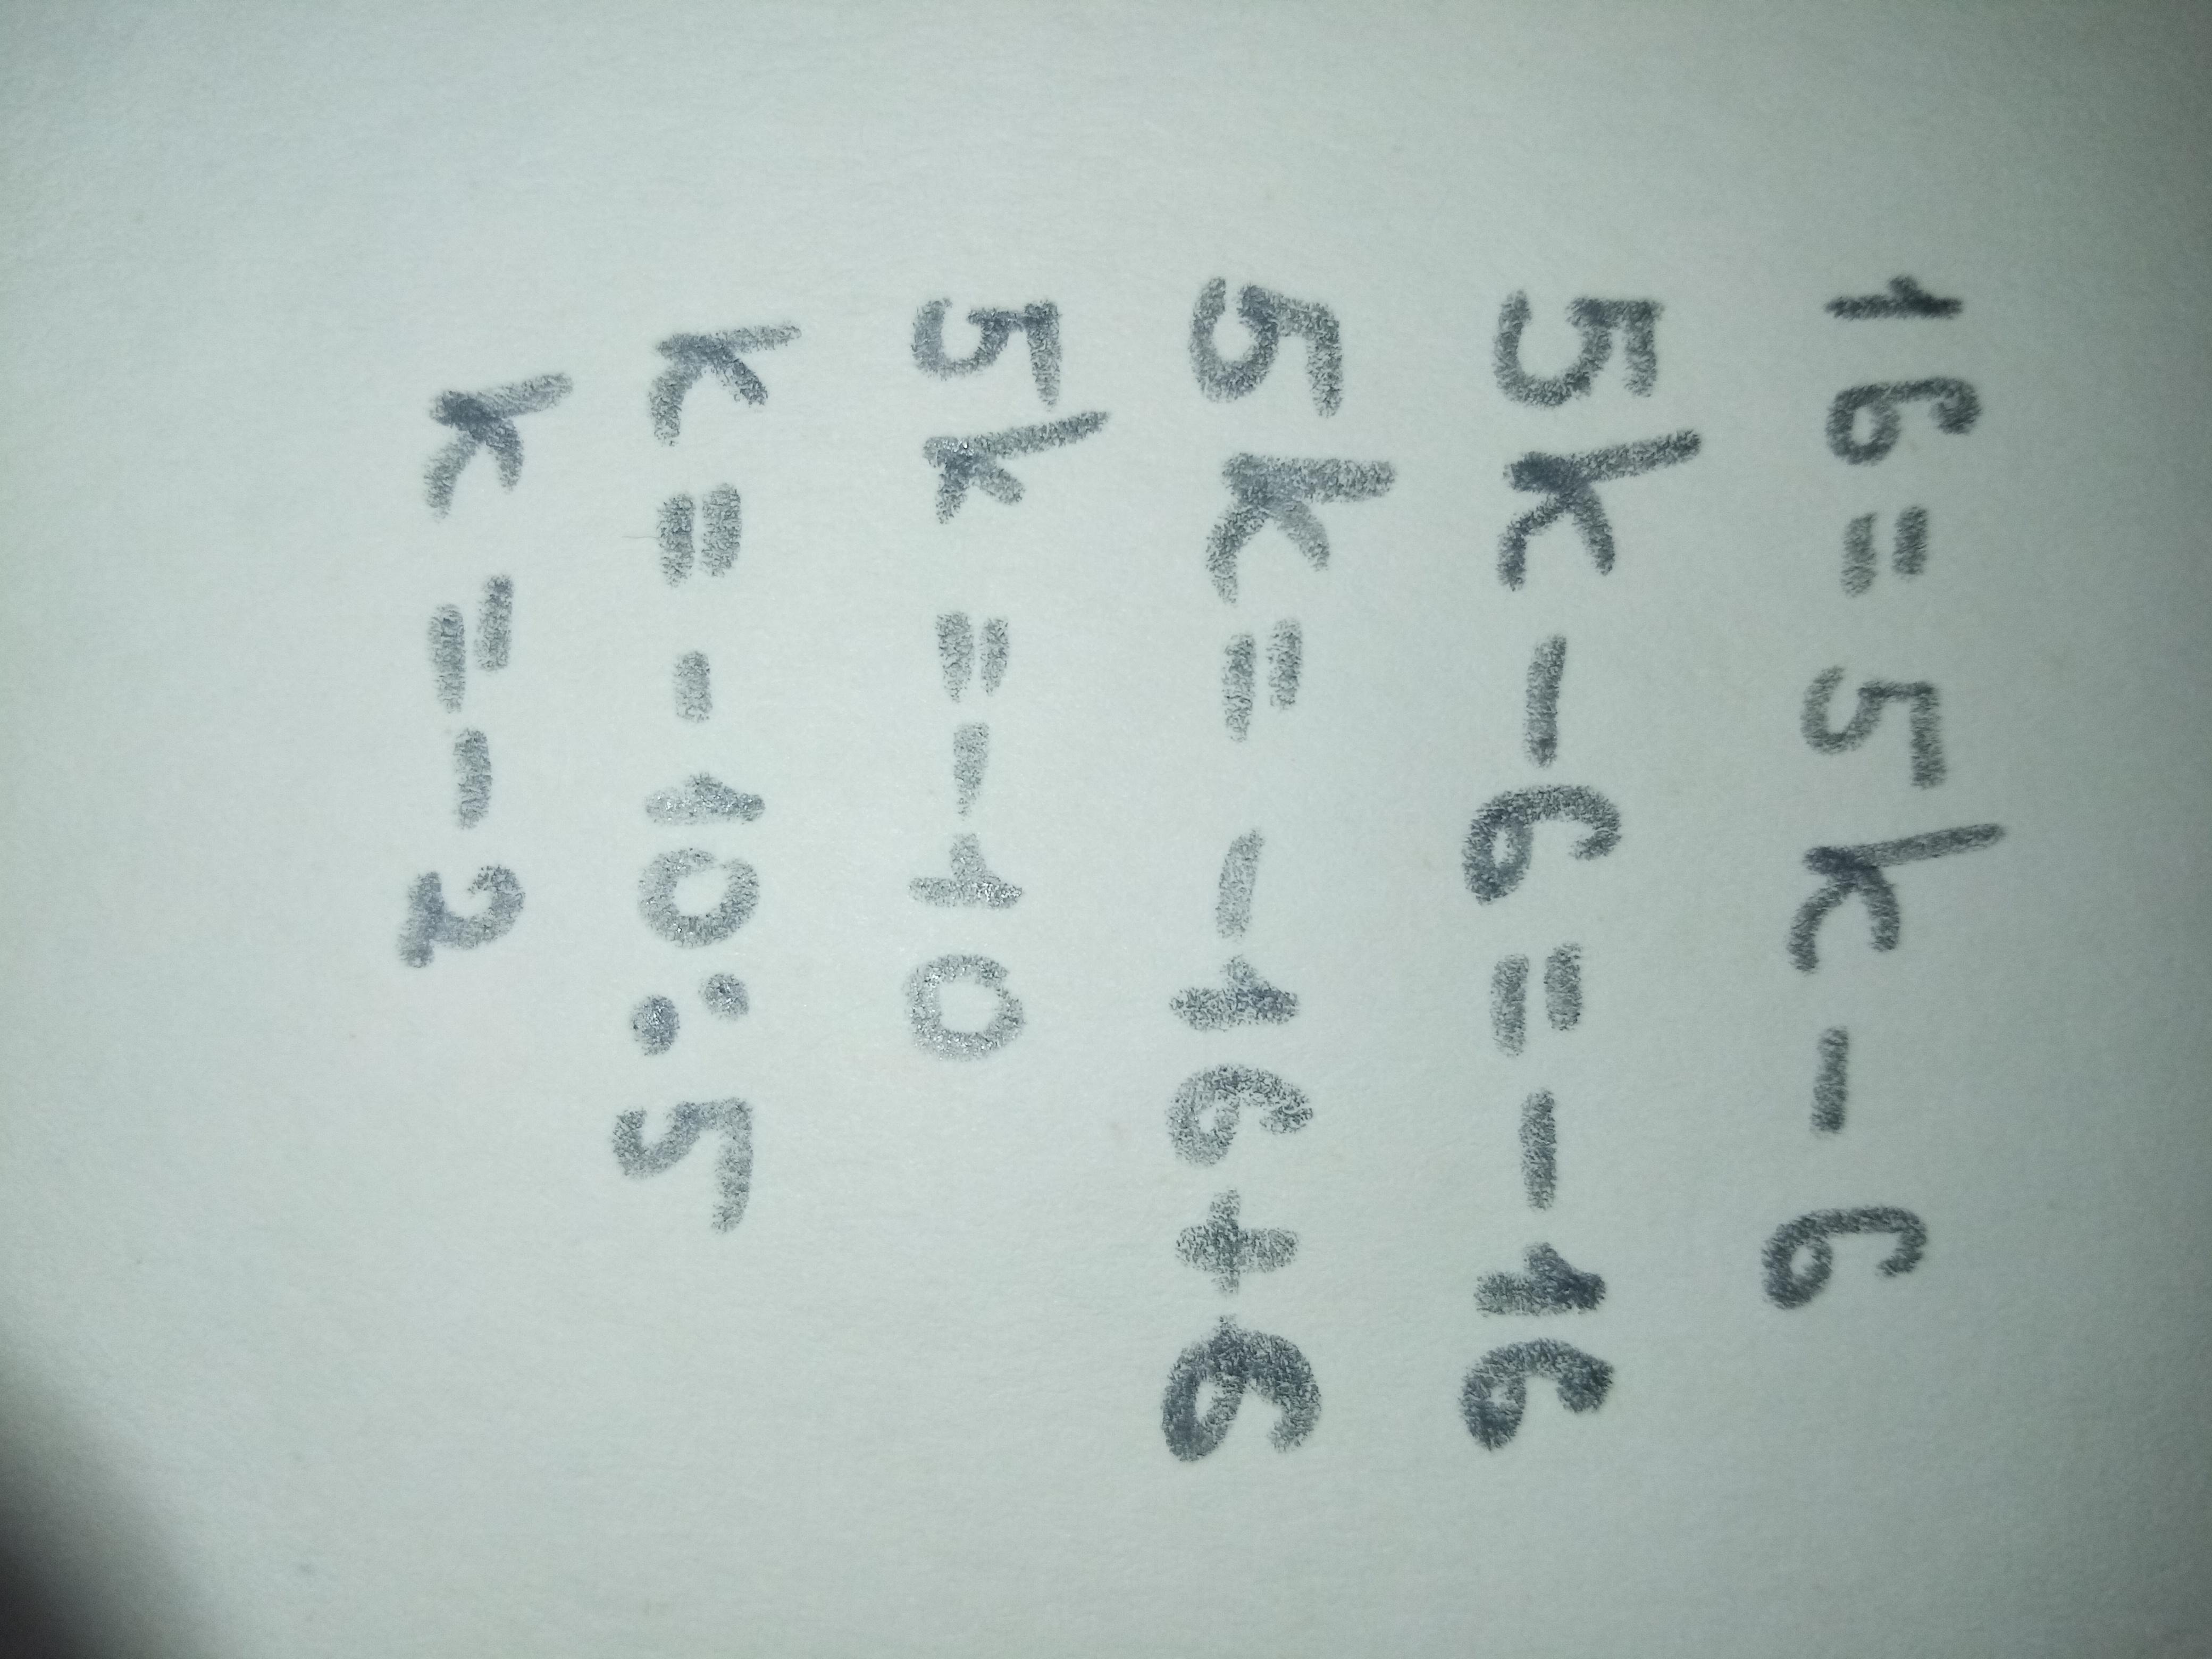 16 = 5k - 6
5k - 6 = - 16
5k = - 16 + 6
5k = - 10
k = - 10 : 5
k = - 2